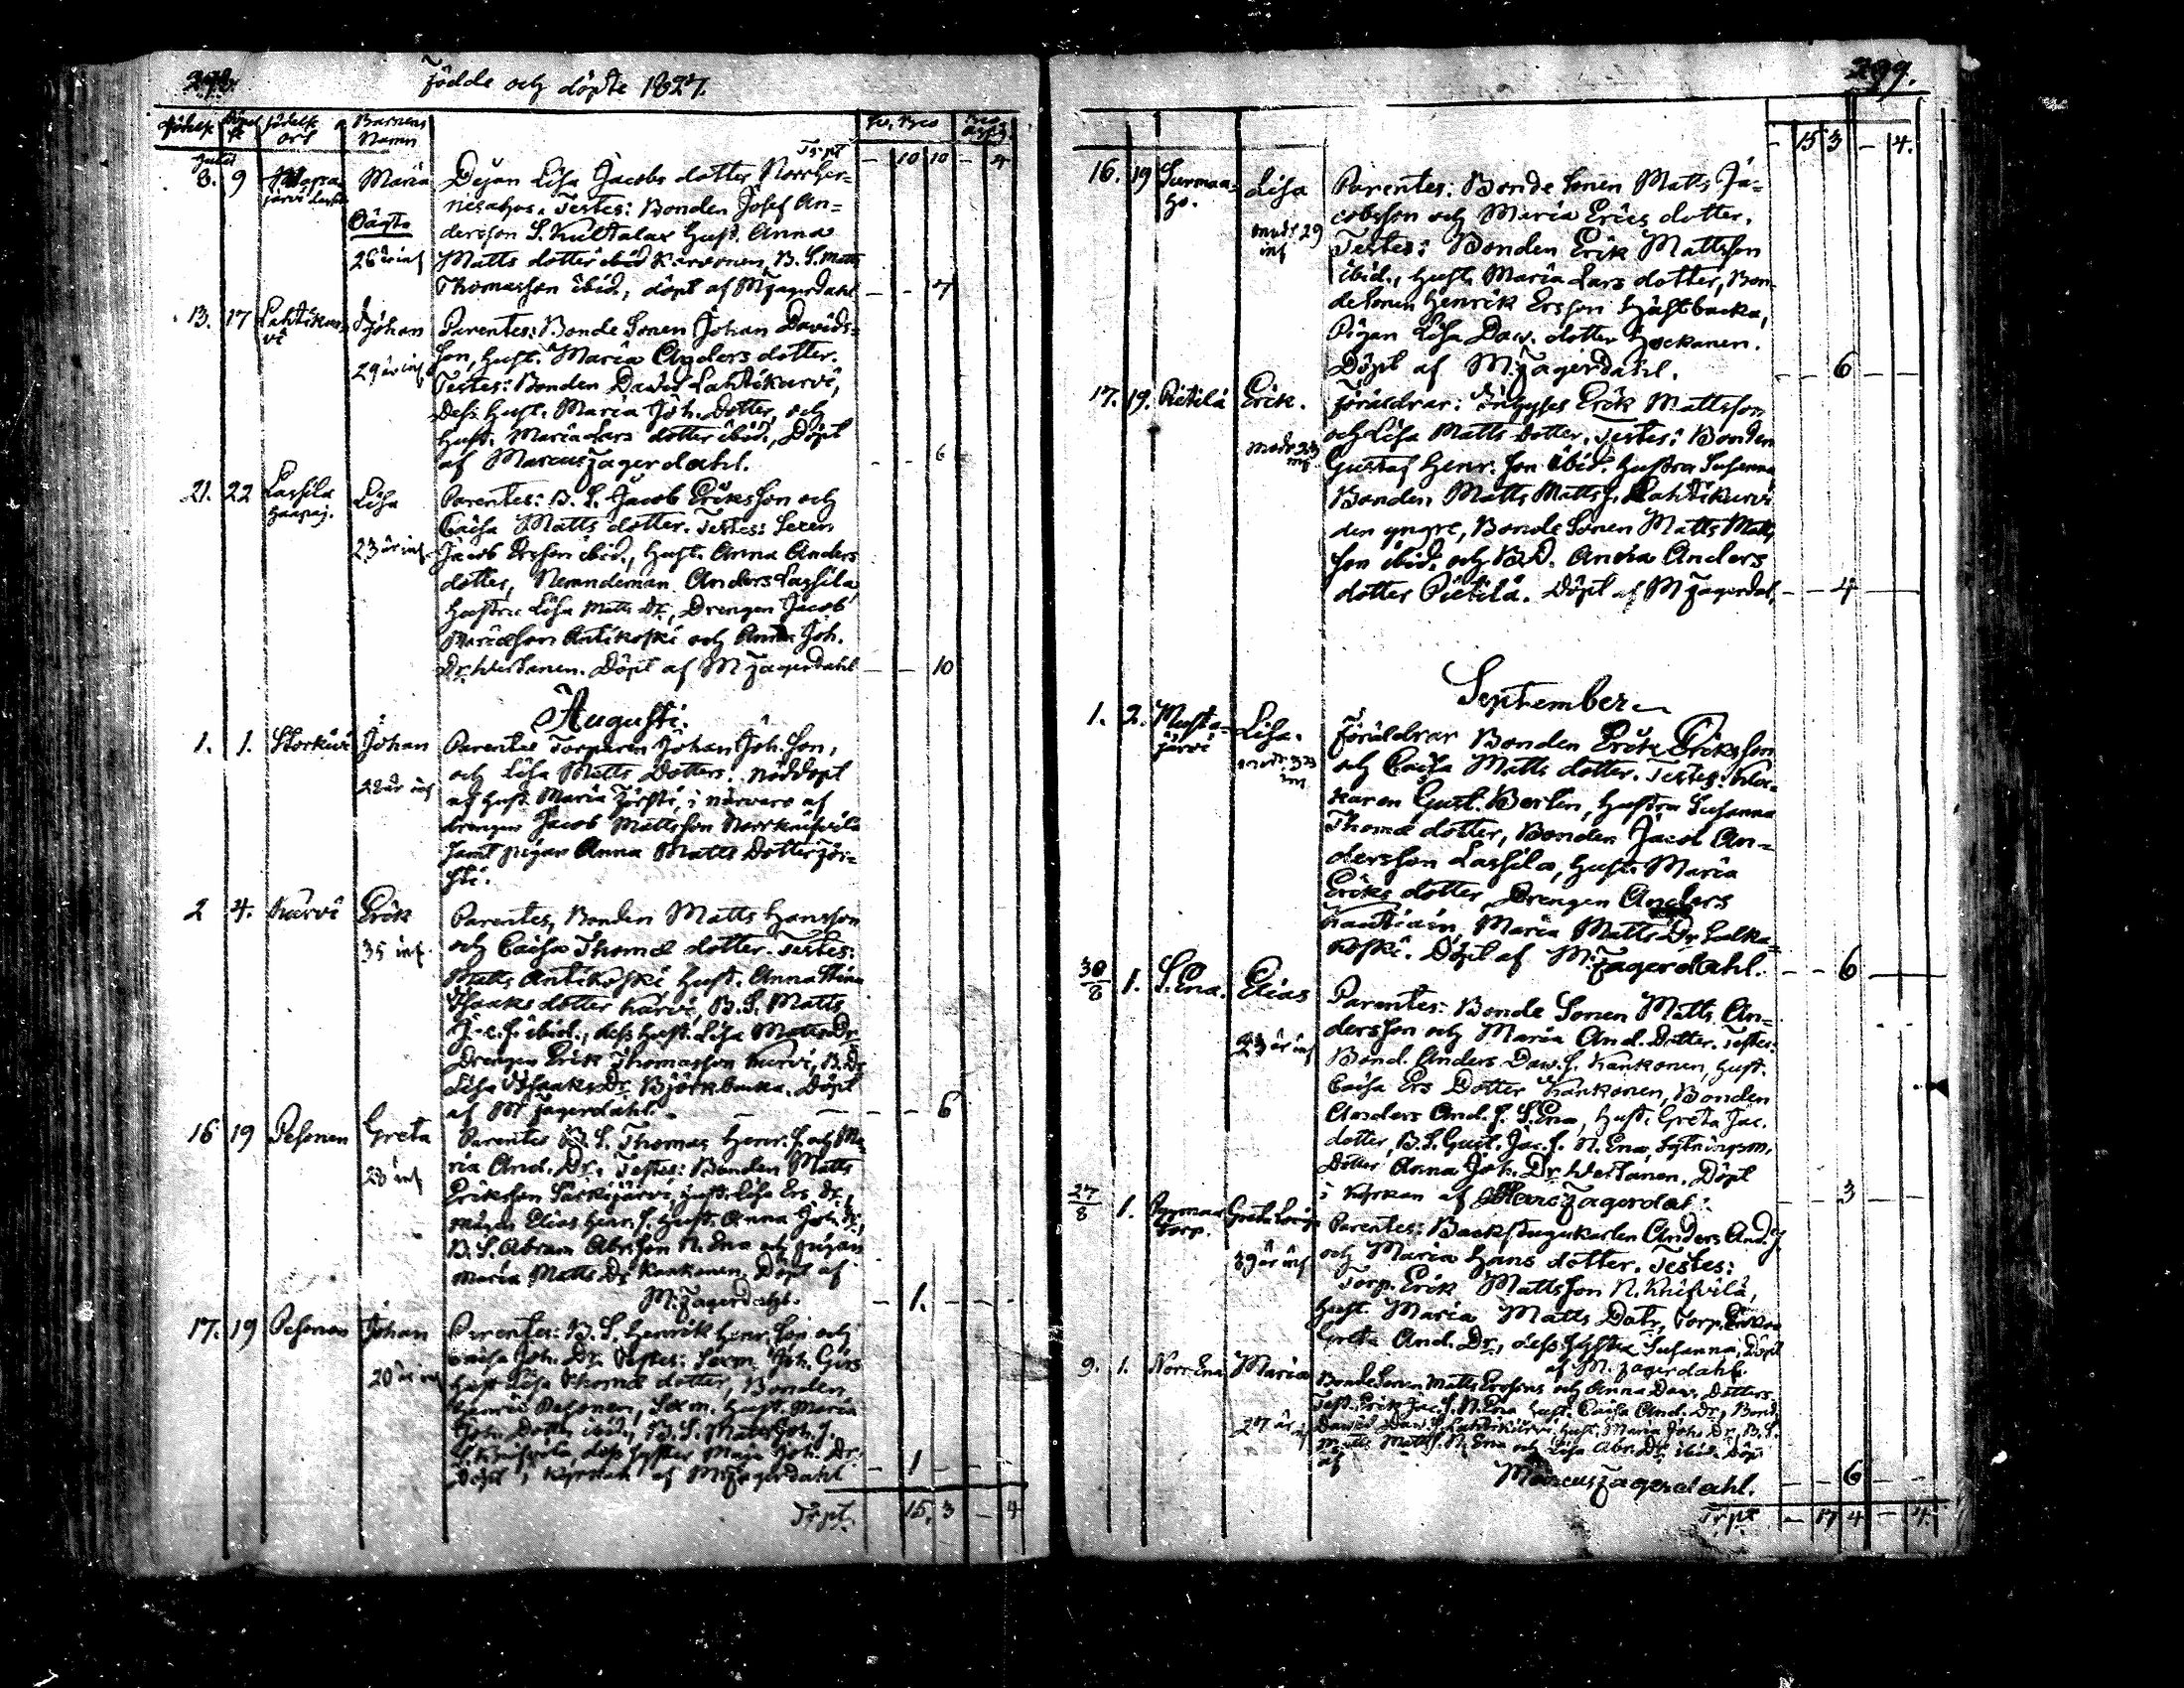 298.
Födde och döpte 1827.
Födelse Döpelse Födelse ort Barnens Namn
Trpt – 10 10 – 4
Julii
8. 9 Maria
Oägta
26 år inf
Pigan Lisa Jacobs dotter
Testes: Bonden Josef An=
dersson S. Kultalax Hust. Anna
Matts dotter ibid B. S. Matts
Thomasson ibid, döpt af M Fagerdahl – – 7
13. 17 Lahtikur=
vi
Johan
29 år inf
Parentes: Bonde Sonen Johan Davids=
son, Hust. Maria Anders dotter.
Testes: Bonden David Lahtikurvi,
dess Hust. Maria Joh. dotter, och
Hust. Maria Lars dotter ibid., Döpt
af Marcus Fagerdahl. – – 6
21. 22 Lassila
Haapaj.
Lisa
23 år inf
Parentes: B. S. Jacob Eriksson och
Caisa Matts dotter. Testes:
Jacob Ersson ibid., Hust. Anna Anders
dotter, Nemndeman Anders Lassila
Hustru Lisa Matts Dr., Drengen Jacob
Antikoski och Anna Joh.
Dr. Westanen. Döpt af M Fagerdahl – – 10
Augusti.
1. 1. Johan
Parentes Torparen Johan Joh. Son,
och Lisa Matts Dotter. nöddöpt
af Hust. Maria i närvaro af
drengen Jacob Mattsson
samt pigan Anna Matts Dotter
2 4. Kurvi Erik
35 inf.
Parentes, Bonden Matts Hansson
och Caisa Thomæ dotter. Testes:
Matts Antikoski Hust. Anna Stina
Isaaks dotter Kurvi, B. S. Matts
ibid., dess Hust. Lisa Matts Dr
Drengen Erik Thomasson Kurvi, B. Dr
Lisa Isaaks Dr. Björkbacka. Döpt
af M Fagerdahl. – – 6
16 19 Pesonen Greta
28 inf
Parentes B. S. Thomas Henr. S. och Ma
ria And. Dr. Testes: Bonden Matts
Eriksson Särkijärvi, Hust. Lisa Ers dr.,
Elias Henr. S. Hust. Anna Joh. Dr,
B. S. Abram Abrsson N. Ena och pigan
Maria Matts Dr Kankanen. Döpt af
M. Fagerdahl. – 1. – –
17. 19 Pesonen Johan
20 år inf
Parentes: B. S. Henrik Henr. Son och
Caisa Joh. Dr. Testes: Sexm. Joh. Gus
Hust Lisa Thomæ dotter, Bonden
Henric Pesonen, Sexm. Hust. Maria
Joh. Dotter ibid., B. S. Matts Joh. S.
S. Knihvilä, dess syster Maja Joh. Dr.
Döpt i Kyrkan af M. Fagerdahl – 1 – –
Trpt. 15. 3 – 4
299.
– 15 3 – 4.
16. 19 Surmaa=
ho.
Lisa
modr 29
inf
Parentes: Bonde Sonen Matts Ja=
cobsson och Maria Erics dotter.
Testes: Bonden Erik Mattsson
ibid., Hust. Maria Lars dotter, Bon=
de Sonen Henrik Ersson Hästbacka,
Pigan Lisa Dav. dotter Jockanen.
Döpt af M. Fagerdahl. – – 6 – –
17. 19. Pietilä Erik.
modr 33
inf
Föräldrar: Inhyses Erik Mattsson
och Lisa Matts dotter. Testes: Bonden
Gustaf Henr. Son ibid. Hustru Susanna
Bonden Matts Matts S. Lahtikurvi
den yngre, Bonde Sonen Matts Matts
son ibid. och B. D. Anna Anders
dotter Pietilä. Döpt af M Fagerdal. – – 4 – –
September
1. 2. Musta=
järvi
Lisa.
modr 33
inf
Föräldrar Bonden Erik Eriksson
och Caisa Matts dotter. Testes: Kloc=
karen Gust. Berlin, Hustru Susanna
Thomæ dotter, Bonden Jacob An=
dersson Lassila, Hust. Maria
Eriks dotter Drengen Anders
Kauttiain, Maria Matts Dr Salka=
koski. Döpt af M. Fagerdahl. – – 6 – –
30/8 1. S. Ena. Elias
23 år inf
Parentes: Bonde Sonen Matts An=
dersson och Maria And. Dotter. Testes:
Bond. Anders Dav. S. Kankonen, Hust.
Caisa Ers Dotter Kankonen, Bonden
Anders And. S. S. Ena, Hust. Greta Jac.
dotter, B. S. Gust. Jac. S. N. Ena,
Dotter Anna Joh. Dr. Westanen. Döpt
i Kyrkan af Marc. Fagerdal. – – 3 – –
27/8 1. Torp. Greta Lovisa
39 år inf
Parentes: Backstugukarlen Anders And. S
och Maria Hans dotter. Testes:
Torp. Erik Mattsson N. Knihvilä,
Hust. Maria Matts Dotr, Torp. Enkan
Greta And. Dr., dess Syster Susanna, Döpt
af M. Fagerdahl.
9. 1. Norr Ena Maria
27 år inf
Bonde Sonen Matts Erssons och Anna Dav. Dotters
Test. Erik Jac. S. N. Ena Hust. Caisa And. Dr, Bond.
David Dav. S. Lahtikurvi Hust. Maria Johs Dr, B. S.
Matts Matts S. N. Ena och Lisa Abr. Dr. ibid. Döpt
af
Marcus Fagerdahl. – – 6 – –
Trpt – 17 4 – 4.